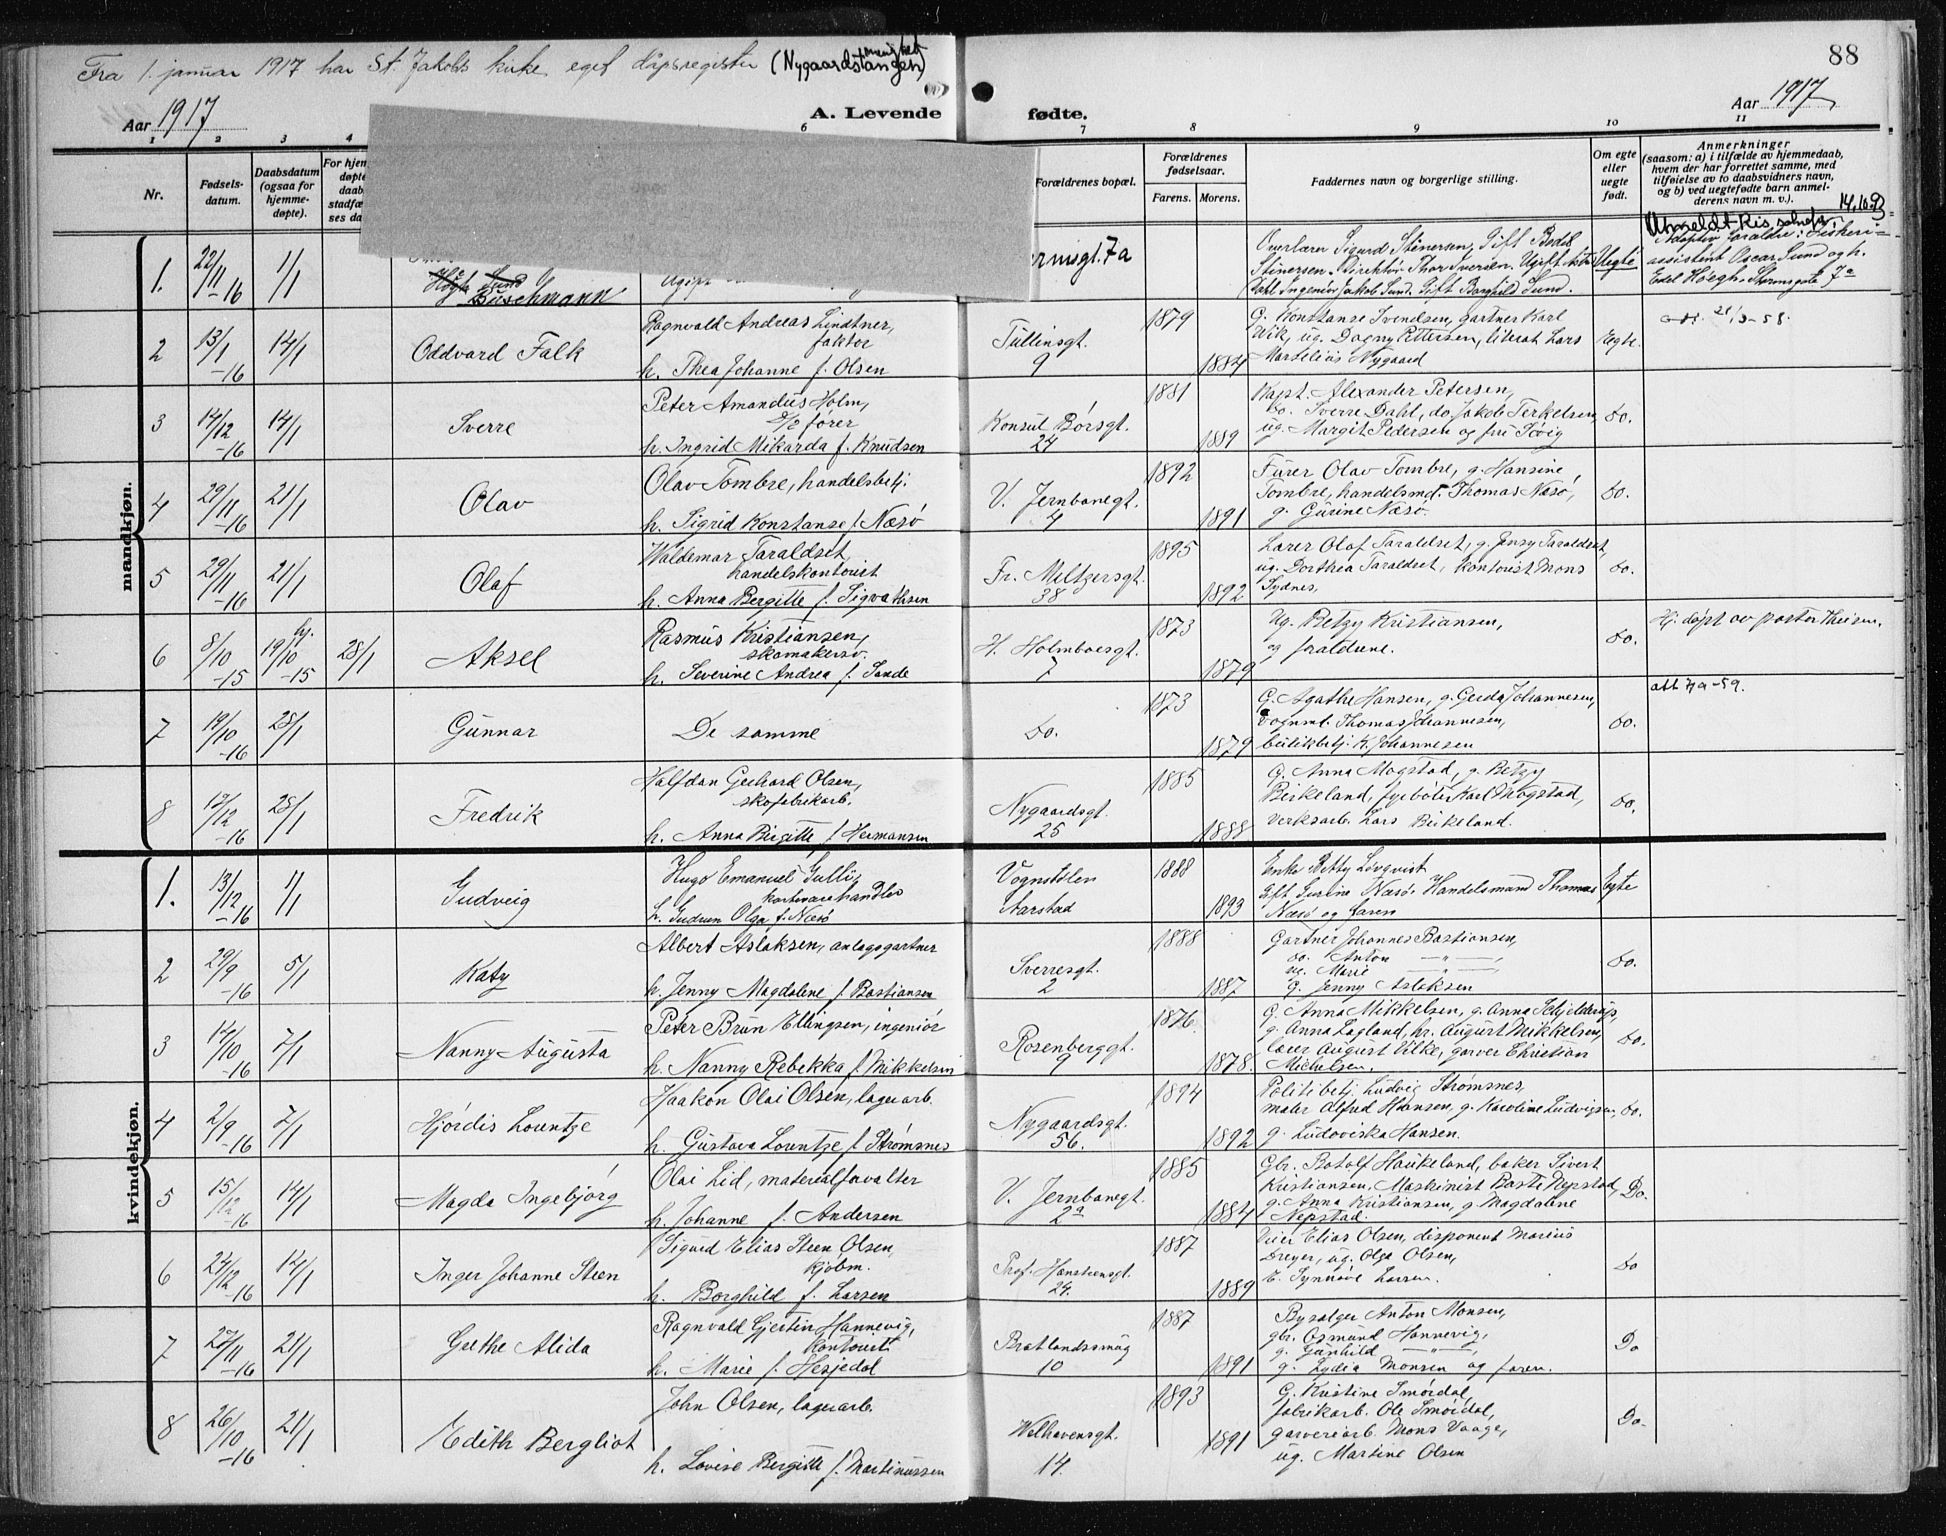 Fra 1. januar 1917 har St. Jakobs kirke eget dåpsregister (Nygaardstangen menighet)
88
Aar 1917
A. Levende fødte.
Aar 1917
1 2 3 4 6 7 8 9 10 11
Nr.
Fødsels-
datum.
Daabsdatum
(ogsaa for
hjemme-
døpte).
For hjem
døpte
daab
stadfæ
ses da
Forældrenes bopæl.
Forældrenes
fødselsaar.
Farens. Morens.
Faddernes navn og borgerlige stilling.
Om egte
eller
uegte
født.
Anmerkninger
(saasom: a) i tilfælde av hjemmedaab,
hvem der har forrettet samme, med
tilføielse av to daabsvidners navn,
og b) ved uegtefødte barn anmel-
derens navn m. v.).
14.10.93
Utmeldt
mandkjøn.
1. 22/11-16 1/1
Høgh Sund
Buschmann
ermsgt. 7a
Overlærer Sigurd Stinersen, Gift Bodil
Stinersen. Direktør Thor Iversen. Ugift
Ingeniør Jakob Sund. Gift Borghild Sund.
Uegte
assistent Oscar Sund og h.
Edel Høegh. Stormsgate 7a
2 13/1-16 14/1 Oddvard Falk
Ragnvald Andreas Lindtner,
faktor
h. Thea Johanne f. Olsen
Tullinsgt.
9
1879
1884
G. Konstanse Svendsen, gartner Karl
Wik, ug. Dagny Pettersen, literat Lars
Martelias Nygaard
Egte.
att. 21/3-58.
3 14/12-16 14/1 Sverre
Peter Amandus Holm,
fører
h. Ingrid Mikarda f. Knudsen
Konsul Børsgt.
24
1881
1889
Kapt. Alexander Petersen,
do. Sverre Dahl, do Jakob Terkelsen,
ug. Margit Pedersen og fru Søvig
do.
4 29/11-16 21/1 Olav
Olav Tombre, handelsbetj.
h. Sigrid Konstanse f. Næsø
V. Jernbanegt.
4
1892
1891
Fører Olav Tombre, g. Hansine
Tombre, handelsmd. Thomas Næsø,
g. Gurine Næsø.
do.
5 29/11-16 21/1 Olaf
Waldemar Taraldset,
handelskontorist
h. Anna Bergitte f. Sigvathsen
Fr. Meltzersgt.
38
1895
1892
Lærer Olof Taraldset, g. Jensy Taraldset,
ug. Dorthea Taraldset, kontorist Mons
Sydnes,
do.
6 8/10-15 hj. 19/10-15 28/1 Aksel
Rasmus Kristiansen,
skomakersv.
h. Severine Andrea f. Sande
H. Holmboesgt.
7
1873
1879
Ug. Betzy Kristiansen,
og foraldrene.
do.
Hj. døpt av pastor Theisen.
7 19/10-16 28/1 Gunnar
De samme
do.
1873
1879
G. Agathe Hansen, g. Gerda Johannesen,
vognmt. Thomas Johannesen,
butikkbetj. K. Johannesen
do.
att 7/9-59.
8 12/12-16 28/1 Fredrik
Halfdan Gerhard Olsen,
skofabrikarb.
h. Anna Birgitte f. Hermansen
Nygaardsgt.
25
1885
1888
G. Anna Mogstad, g. Betzy
Birkeland, fyrbøter Karl Mogstad,
verksarb. Lars Birkeland.
do.
kvindekjøn.
1. 13/12-16 1/1 Gudveig
Hugo Emanuel Gulli,
kortevarehandler
h. Gudrun Olga f. Næsø
Vognstølen
Aarstad
1888
1893
Enke Betty Løvqvist
Gift Gurine Næsø. Handelsmand Thomas
Næsø og faren
Egte
2 29/9-16 5/1 Katy
Albert Aslaksen, anlagsgartner
h. Jenny Magdalene f. Bastiansen
Sverresgt.
2
1888
1887
Gartner Johannes Bastiansen,
do. Anton —"—
ug. Marie —"—,
G. Jenny Aslaksen
do.
3 14/10-16 7/1 Nanny Augusta
Peter Brun Ellingsen, ingeniør
h. Nanny Rebekka f. Mikkelsen
Rosenberggt.
9
1876.
1878.
G. Anna Mikkelsen, g. Anna Schjelderup,
g. Anna Lagland, hr. August Mikkelsen,
lærer August Vilke, garver Christian
Michelsen.
do.
4 2/9-16 7/1 Hjørdis Lorentze
Haakon Olai Olsen, lagerarb.
h. Gustava Lorentze f. Strømsnes
Nygaardsgt.
56.
1894
1892
Politibetj. Ludvig Strømsnes,
maler Alfred Hansen, g. Karoline Ludvigsen,
g. Ludoviska Hansen.
do.
5 15/12-16 14/1 Magda Ingebjørg
Olai Lid, materialforvalter
h. Johanne f. Andersen
V. Jernbanegt.
2a
1885
1884
Gbr. Botolf Haukeland, baker Sivert
Kristiansen, Maskinist Basti Nepstad,
g. Anna Kristiansen, g. Magdalene
Nepstad.
Do.
6 24/12-16 14/1 Inger Johanne Steen
Sigurd Elias Steen Olsen,
kjøbm.
h. Borghild f. Larsen
Prof. Hansteensgt.
24.
1887
1889
Elias Olsen, disponent Marius
Dreyer, ug. Olga Olsen,
E. Synnøve Larsen.
Do
7 27/11-16 21/1 Grethe Alida
Ragnvald Gjertin Hannevig,
kontorist
h. Marie f. Hesjedal
Bratlandssmug
10
1887
1891
Bysælger Anton Monsen,
gbr. Osmund Hannevig,
g. Gunhild —"—,
g. Lydia Monsen og faren.
Do
8 26/10-16 21/1 Edith Bergliot
John Olsen, lagerarb.
h. Lovise Bergitte f. Martinussen
Welhavensgt.
14.
1893
1891
G. Kristine Smørdal,
fabrikarb. Ole Smørdal,
garveriarb. Mons Vaage,
ug. Martine Olsen
Do.